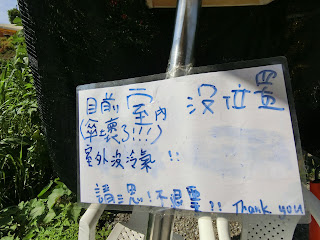 目前室內沒位置
(傘士壞了!!!)
室外沒冷氣!!
請三思!不退票!! Thank you